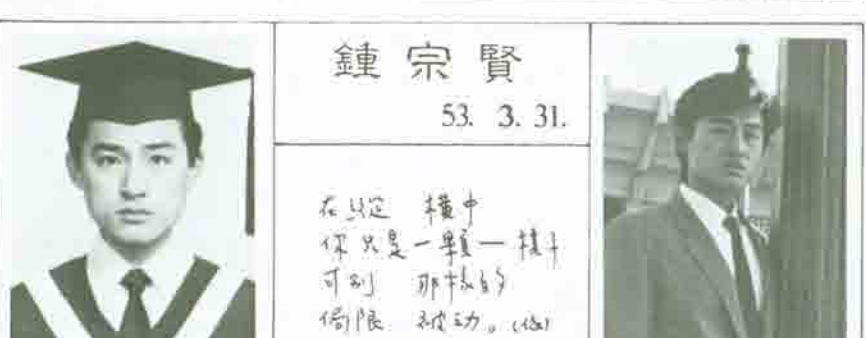 鍾宗賢
53. 3. 31.
在縱 橫中
你只是一顆一棋子
可別 那樣的
侷限 被動。